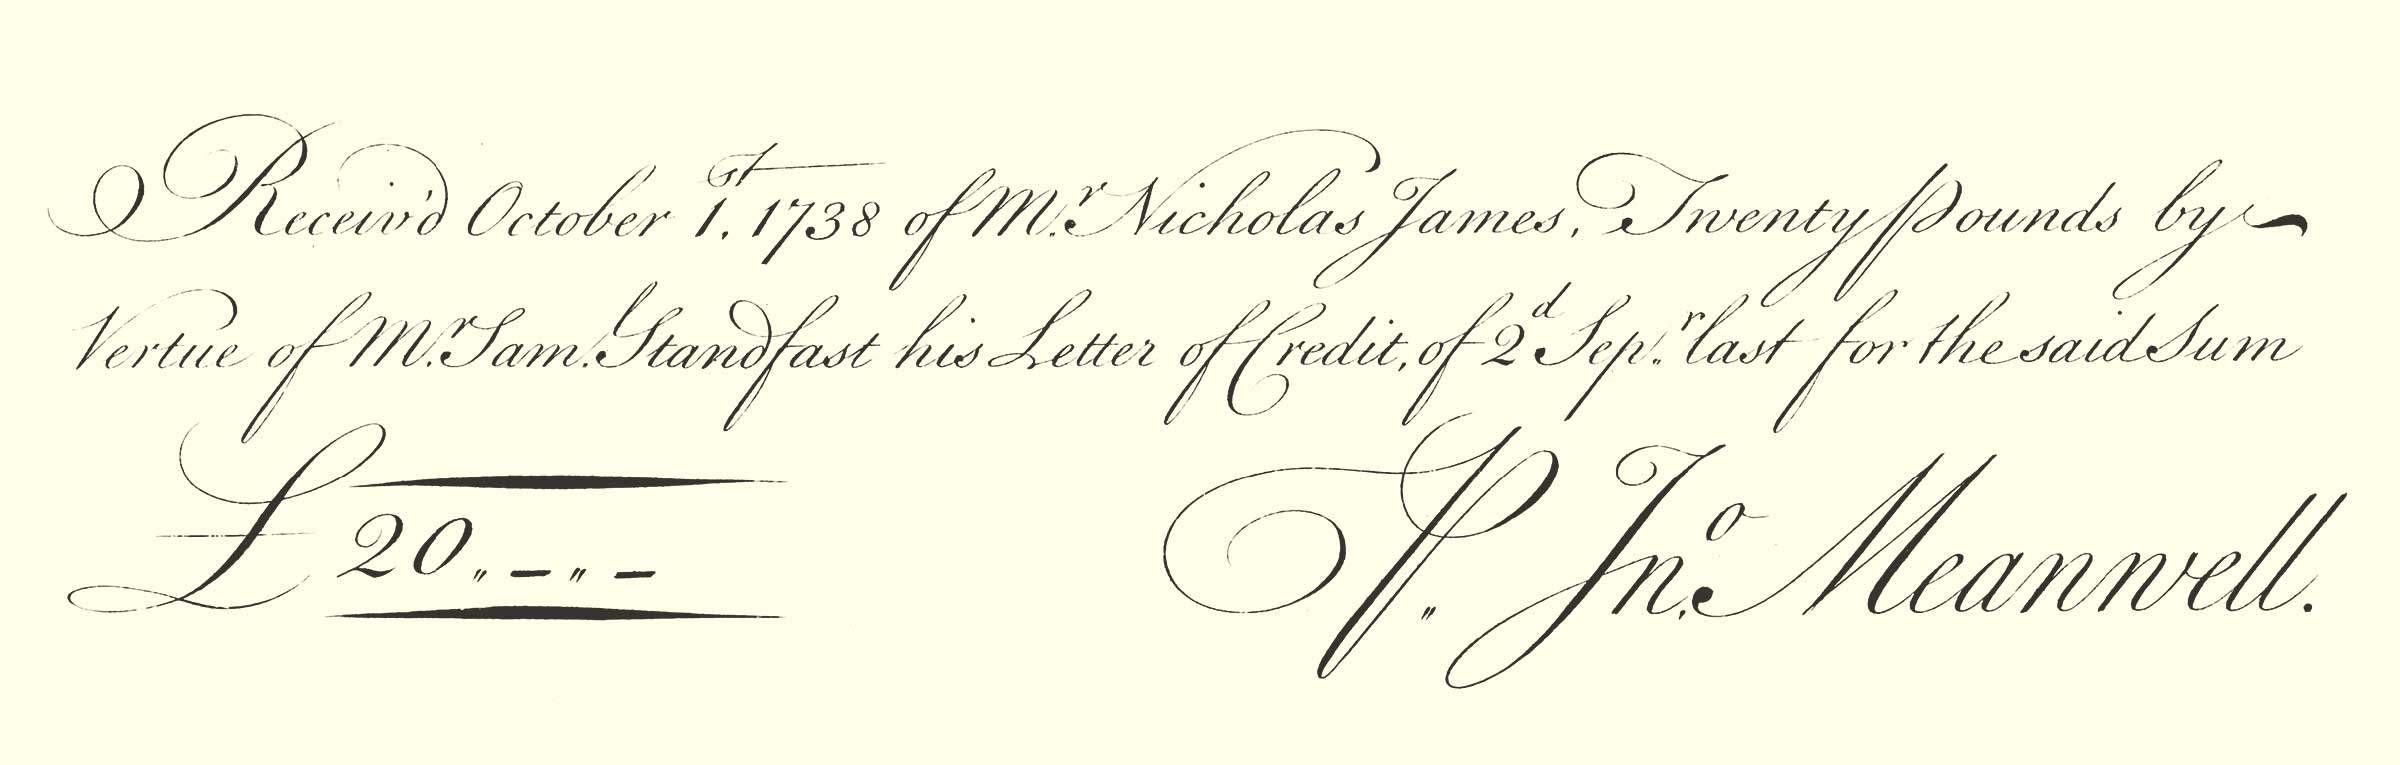 Receiv'd October 1.st 1738 of M.r Nicholas James, Twenty Pounds by
Vertue of M.r Sam.l Standfast his Letter of Credit, of 2d Sep.r last for the said Sum
£ 20 „ — „ — P „ Jn.o Meanwell.